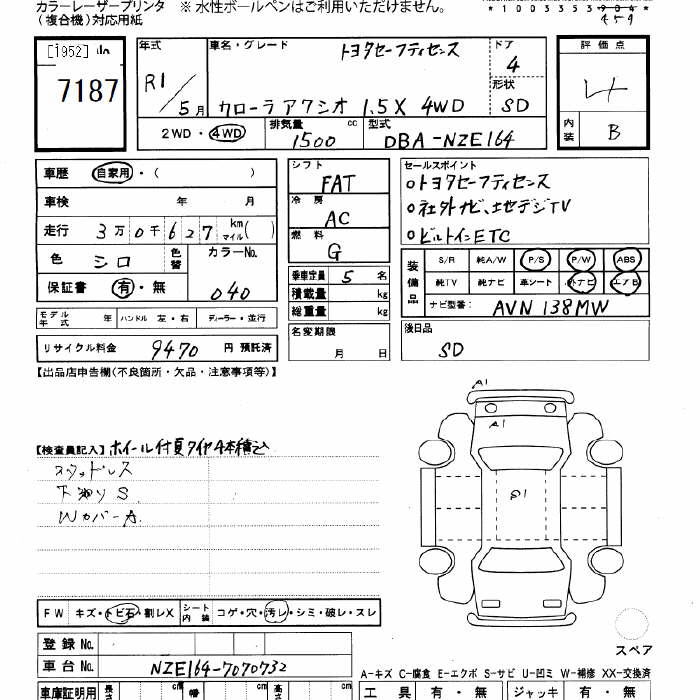 カラーレーザープリンタ ※ 水性ボールペンはご利用いただけません。
(複合機)対応用紙
*1003353904*
459
[1952]
7187
年式 車名・グレード ドア
R1/5月 トヨタセーフティセンス 4
カローラアクシオ 1.5X 4WD
形状 SD
2WD・4WD 排気量 1500 cc 型式 DBA-NZE164
評価点
4
内装 B
車歴 自家用・( )
車検 年 月
走行 3万0千627 km マイル( )
色 シロ 色替 カラーNo. 040
保証書 有・無
モデル年式 年 ハンドル 左・右 ディーラー・並行
リサイクル料金 9470 円 預託済
シフト FAT
冷房 AC
燃料 G
乗車定員 5 名
積載量 kg
総重量 kg
名変期限 月 日
セールスポイント
○トヨタセーフティセンス
○社外ナビ、地デジTV
○ビルトインETC
装備品 S/R 純A/W P/S P/W ABS
純TV 純ナビ 革シート 外ナビ エアB
ナビ型番: AVN 138MW
後日品
SD
【出品店申告欄(不良箇所・欠品・注意事項等)】
【検査員記入】ホイール付夏タイヤ4本積込
スタッドレス
下廻りS
WカバーA
A1
A1
G1
FW キズ・トビ石・割レX シート内装 コゲ・穴・汚レ・シミ・破レ・スレ
登録No.
車台No. NZE164-7070732
スペア
A-キズ C-腐食 E-エクボ S-サビ U-凹ミ W-補修 XX-交換済
車庫証明用 長さ cm 幅 cm 高さ cm
工具 有・無 ジャッキ 有・無